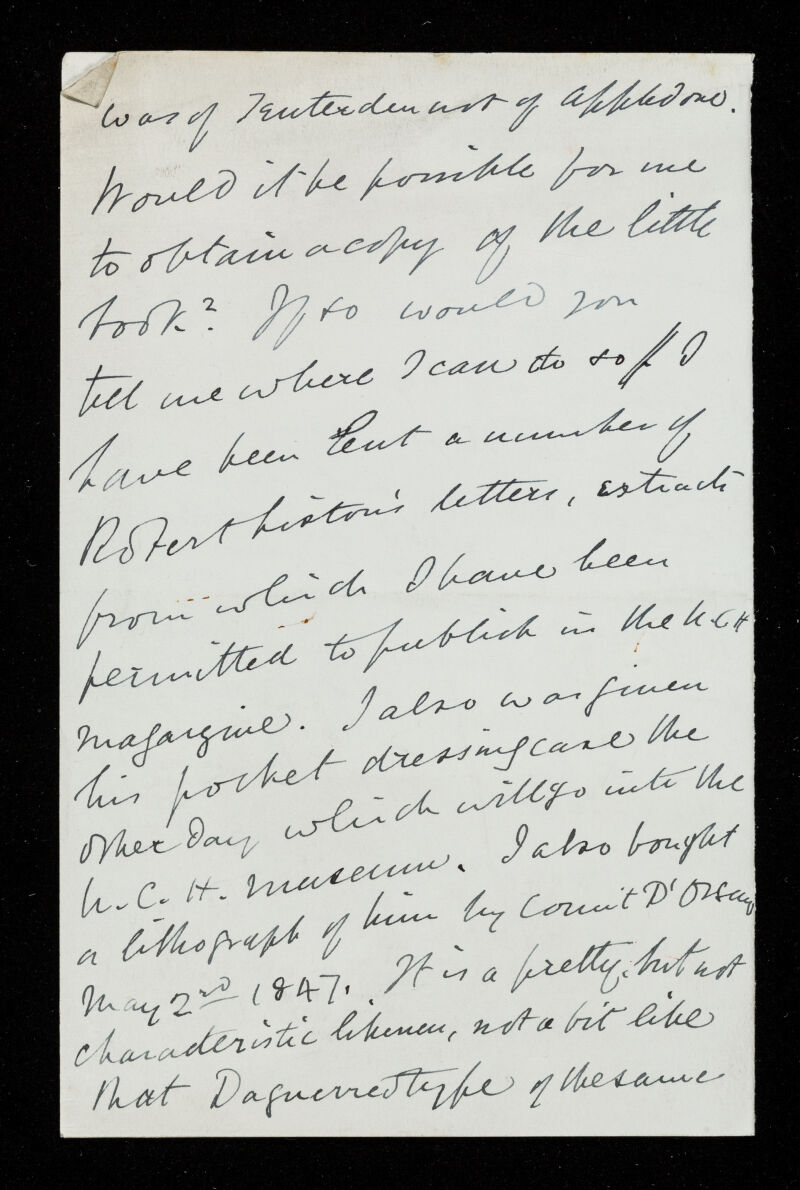 was of Tenterden not of Appledore.
Would it be possible for me
to obtain a copy of the little
book? If so would you
tell me where I can do so? I
have been lent a number of
Robert Liston's letters, extracts
from which I have been
permitted to publish in the U.C.H
magazine. I also was given
his pocket dressing case the
other day which will go into the
U.C.H. Museum. I also bought
a lithograph of him by Count D'Orsay
May 2nd 1847. It is a pretty, but not
characteristic likeness, not a bit like
that Daguerreotype of the same